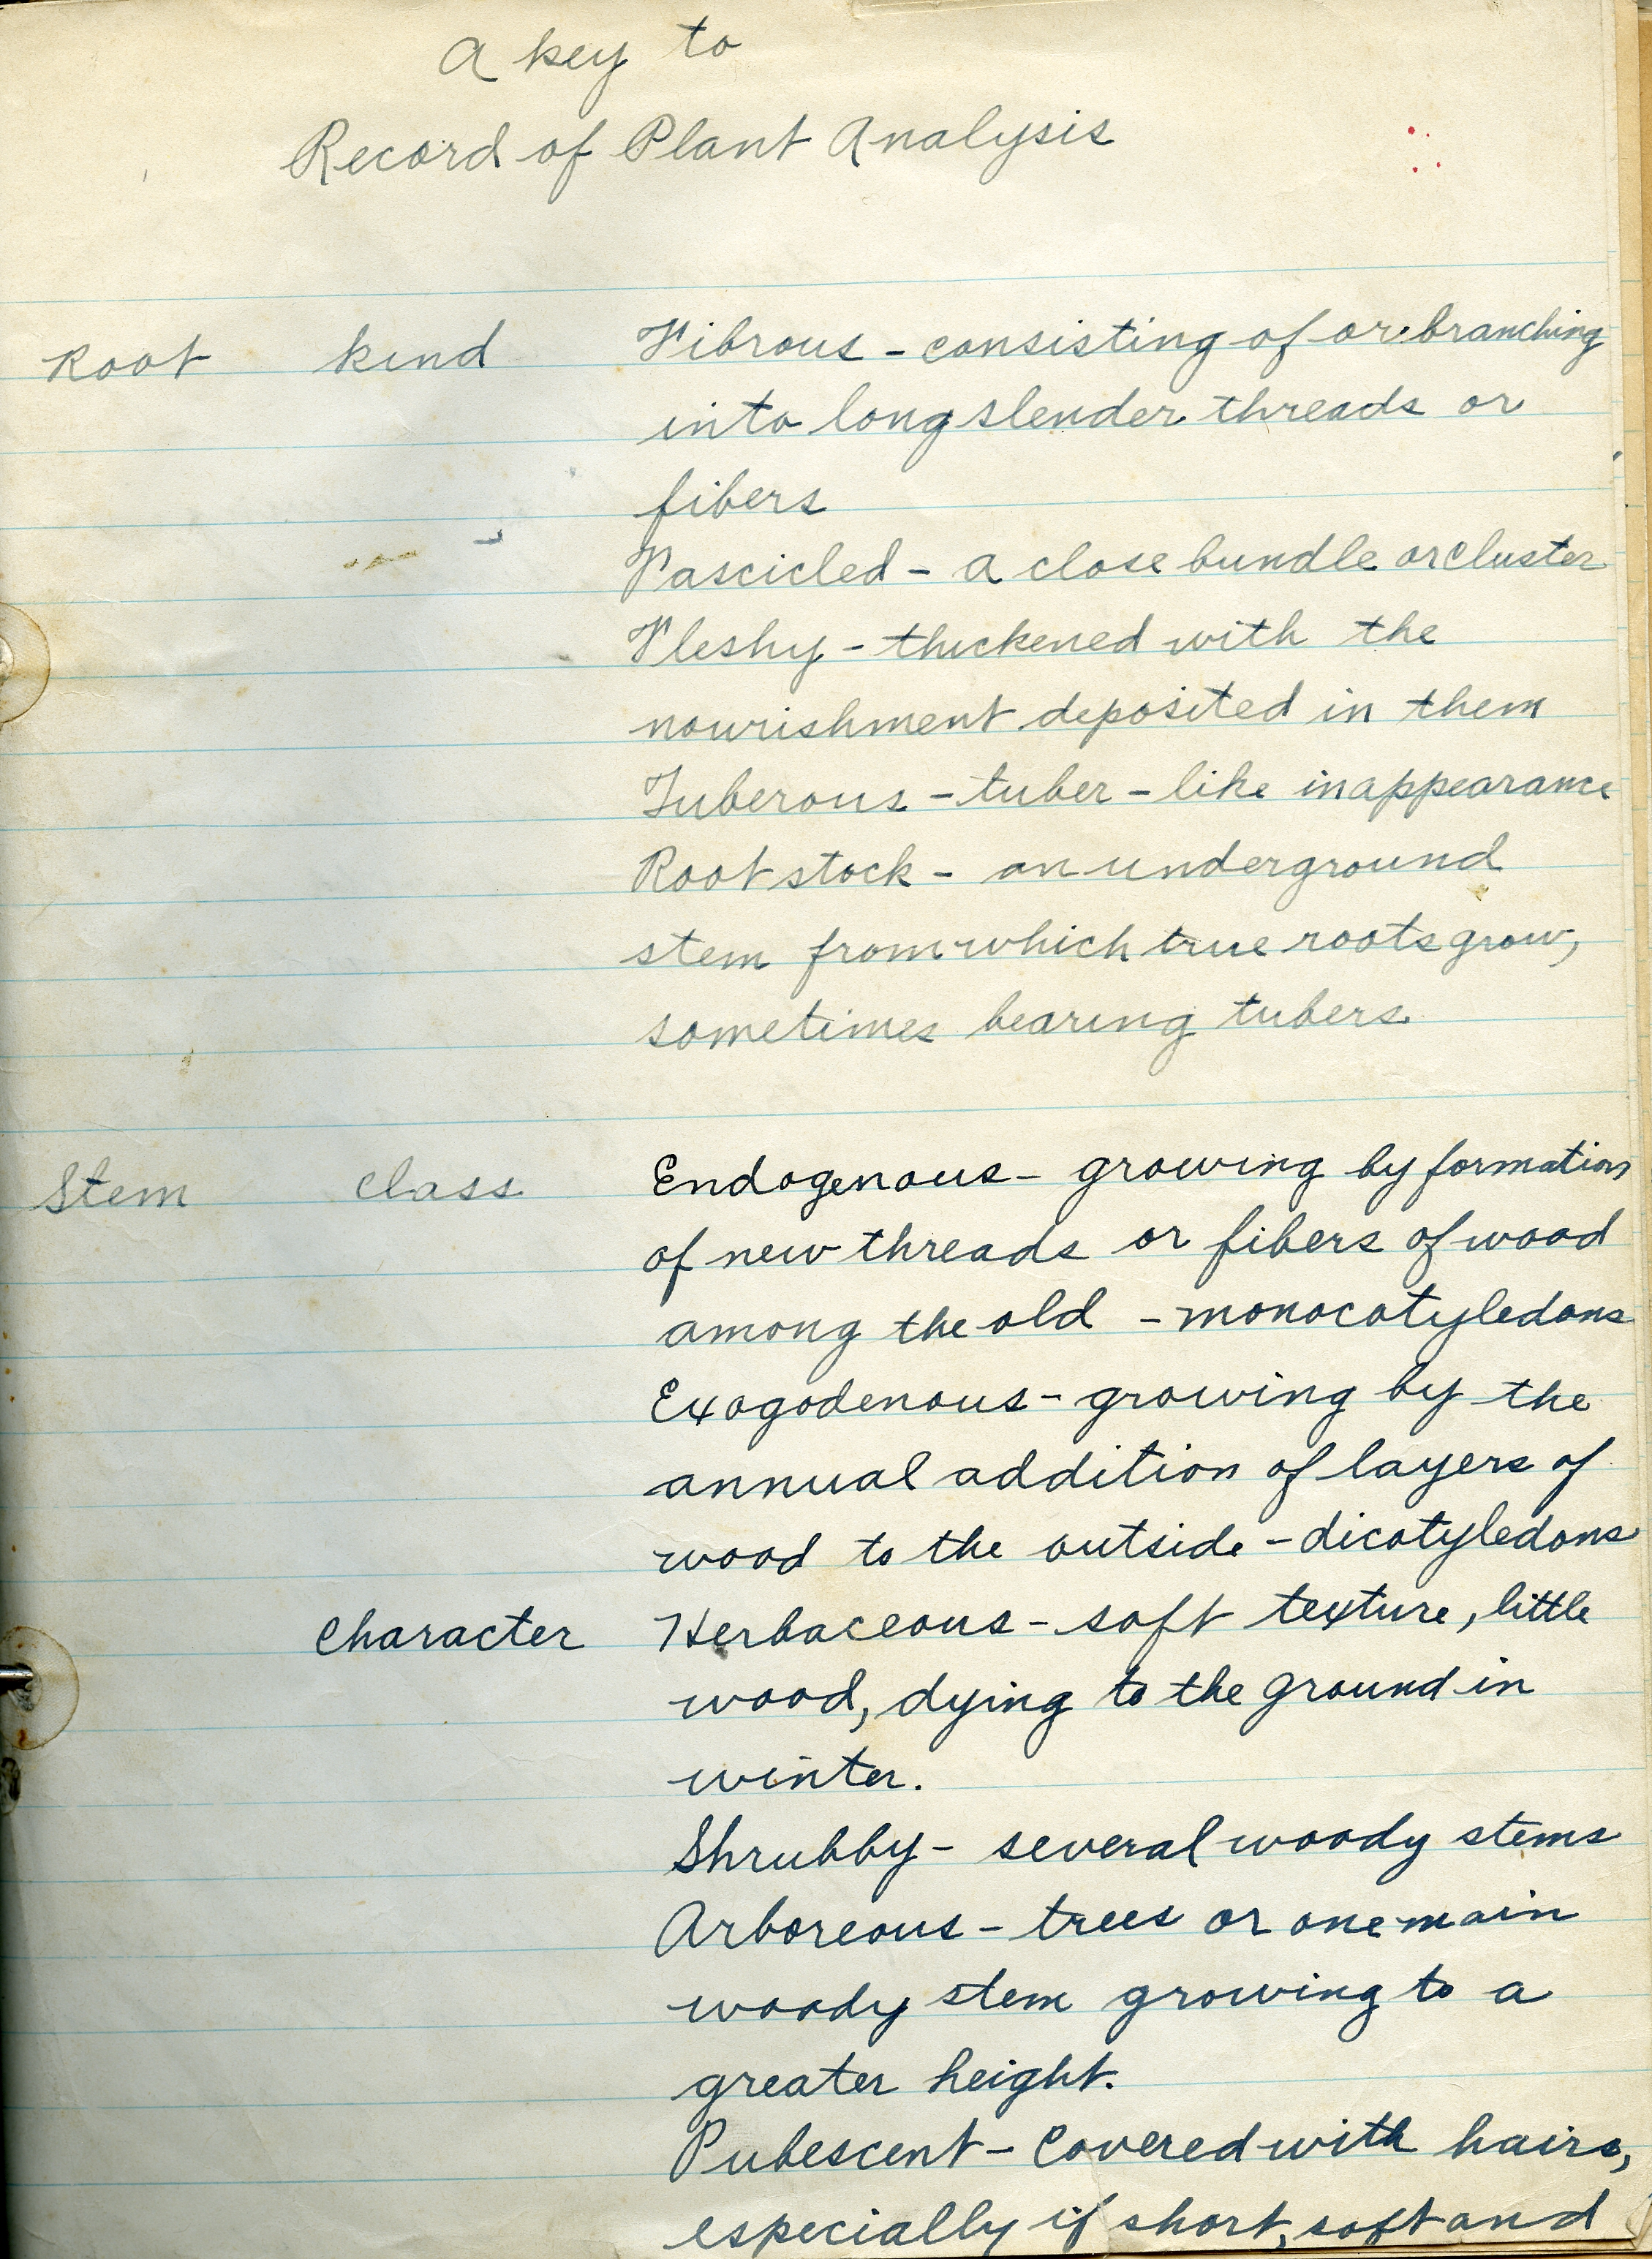 A key to
Record of Plant Analysis
Root kind Fibrous - consisting of or branching
into long slender threads or
fibers
Fascicled - a close bundle or cluster
Fleshy - thickened with the
nourishment deposited in them
Tuberous - tuber - like in appearance
Root stock - an underground
stem from which true roots grow,
sometimes bearing tubers
Stem class Endogenous - growing by formation
of new threads or fibers of wood
among the old - monocotyledons
Exogodenous - growing by the
annual addition of layers of
wood to the outside - dicotyledons
Character Herbaceous - soft texture, little
wood, dying to the ground in
winter.
Shrubby - several woody stems
Arboreous - trees or one main
woody stem growing to a
greater height.
Pubescent - Covered with hairs,
especially if short, soft and